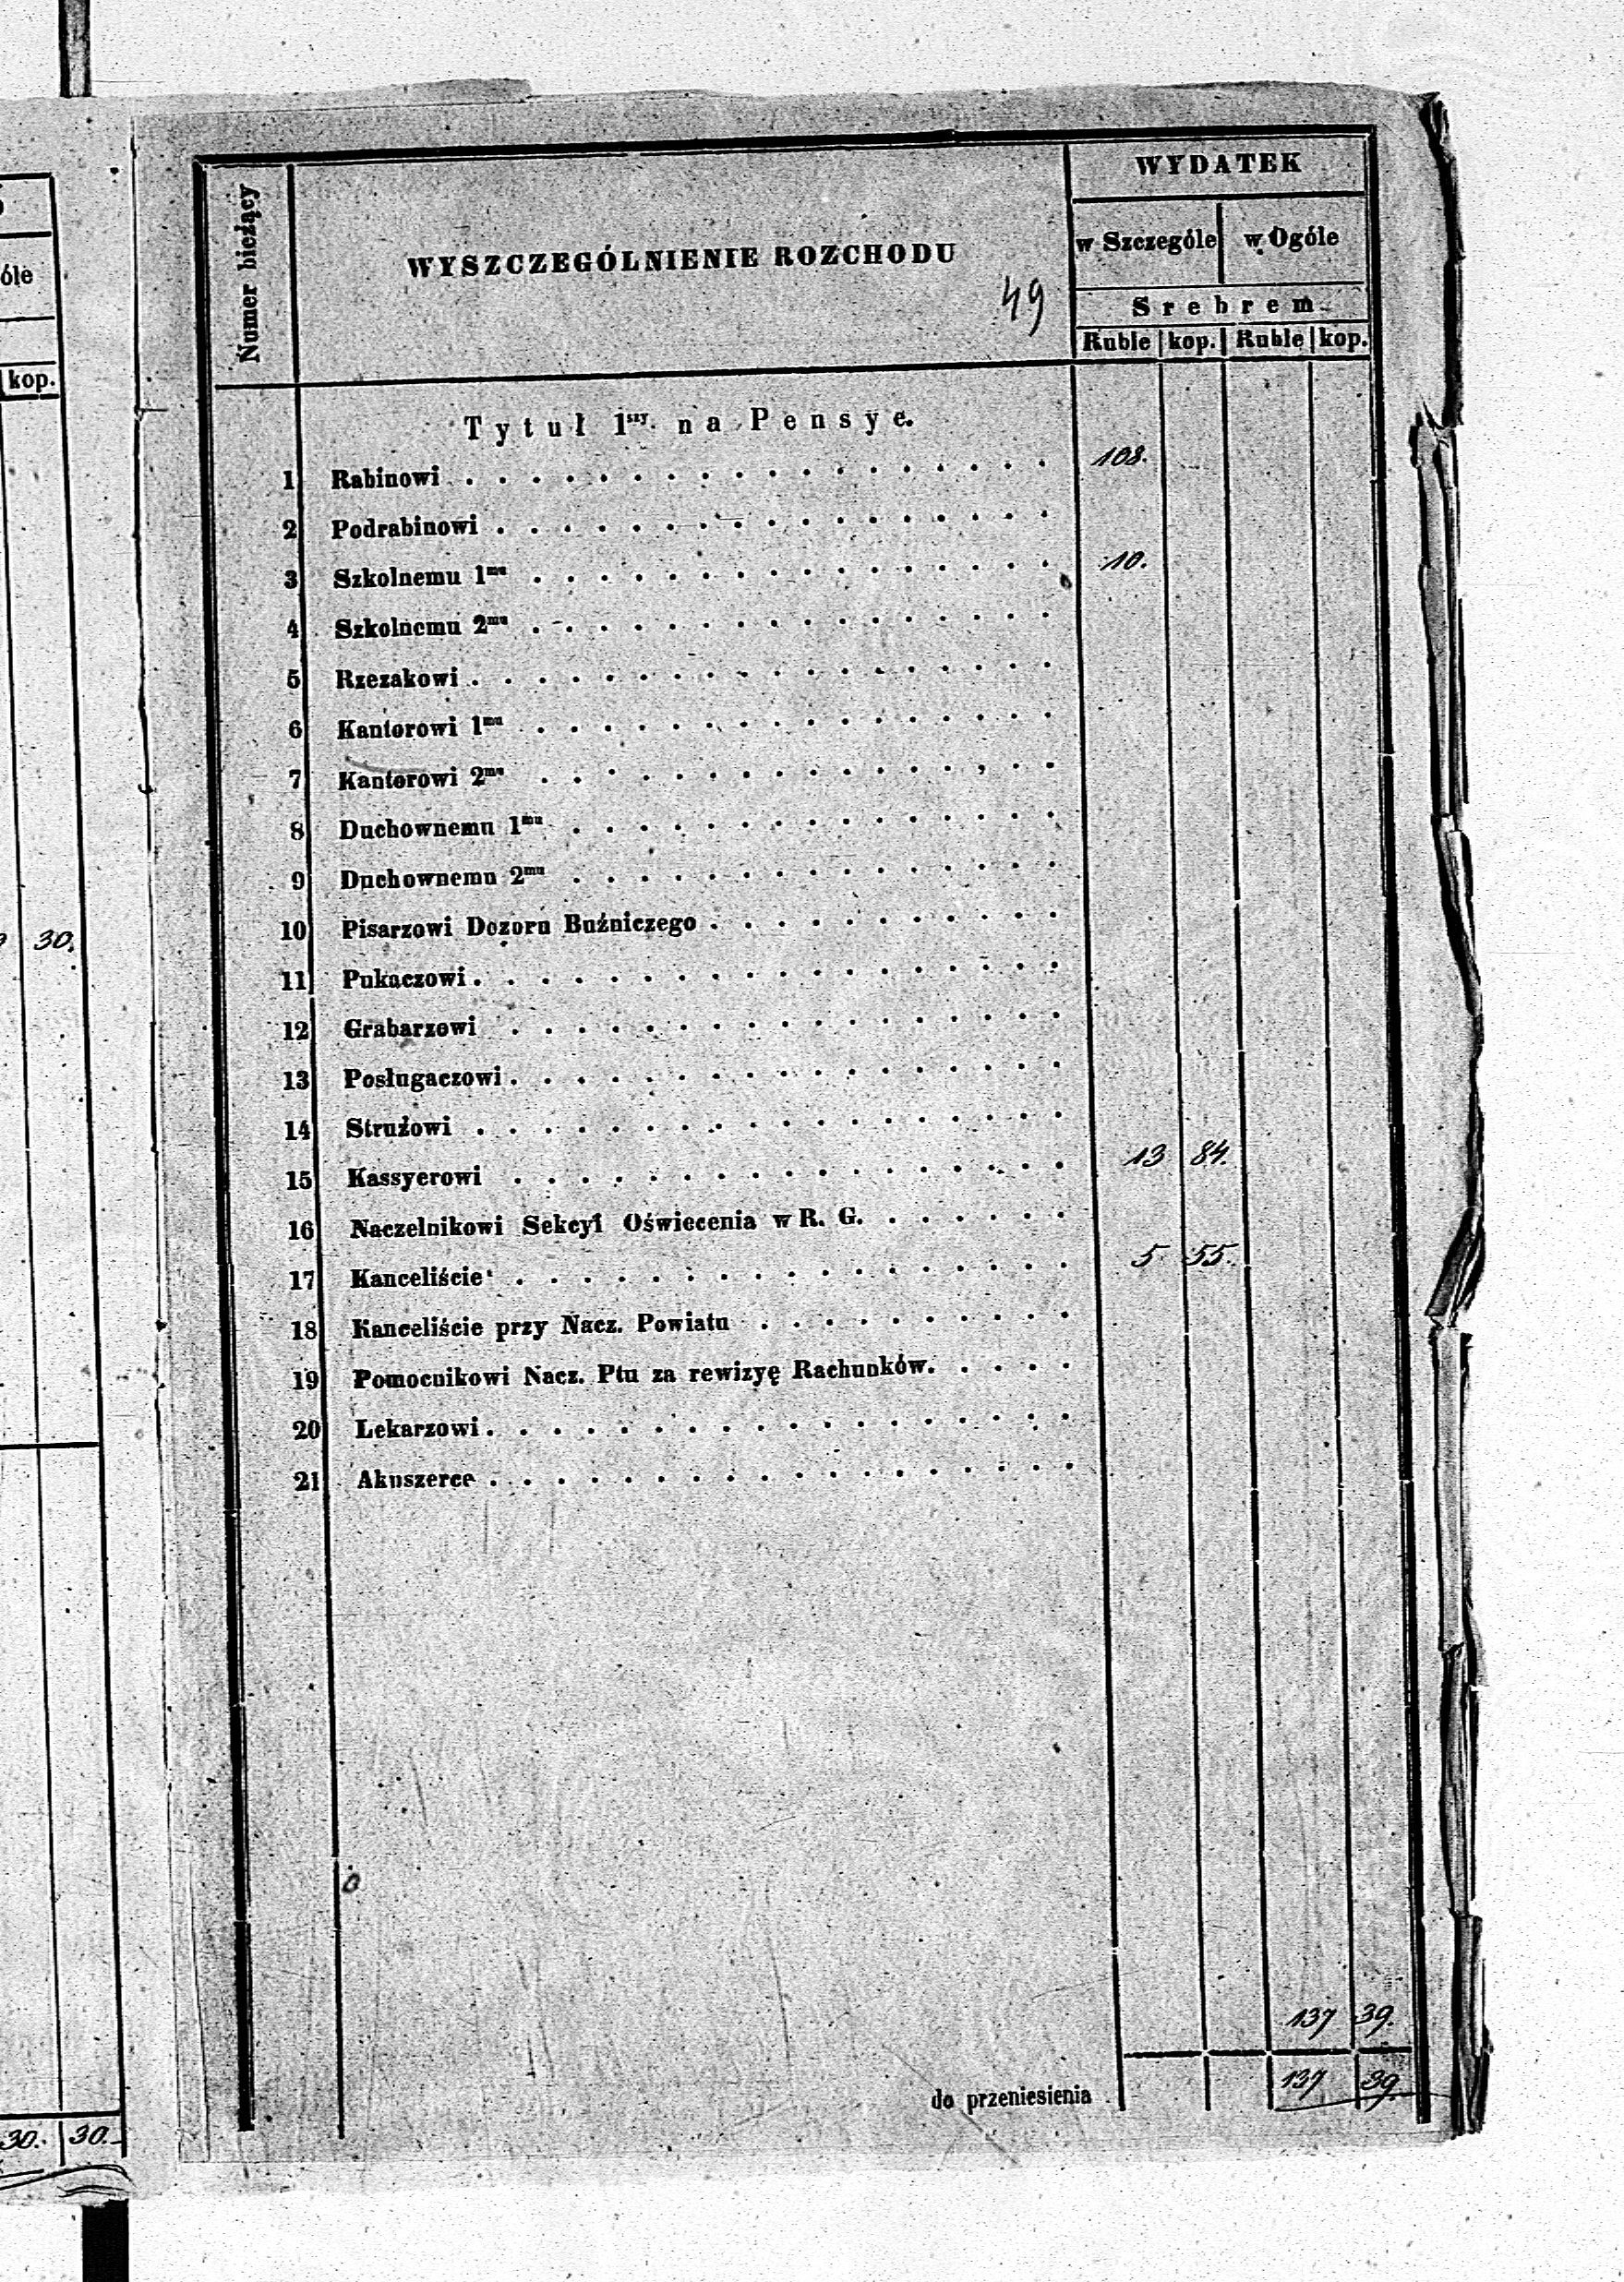 óle
kop.
30.
30. 30.
Numer bieżący
WYSZCZEGÓLNIENIE ROZCHODU
49
WYDATEK
w Szczególe w Ogóle
Srebrem
Ruble kop. Ruble kop.
Tytuł 1szy. na Pensye.
1 Rabinowi . . . . . . . . . . . . . . . . . . 108.
2 Podrabinowi . . . . . . . . . . . . . . . . .
3 Szkolnemu 1mu . . . . . . . . . . . . . . . . 10.
4 Szkolnemu 2mu . . . . . . . . . . . . . . . .
5 Rzezakowi . . . . . . . . . . . . . . . . . .
6 Kantorowi 1mu . . . . . . . . . . . . . . . .
7 Kantorowi 2mu . . . . . . . . . . . . . . . .
8 Duchownemu 1mu . . . . . . . . . . . . . . .
9 Duchownemu 2mu . . . . . . . . . . . . . . .
10 Pisarzowi Dozoru Buźniczego . . . . . . . . . . .
11 Pukaczowi . . . . . . . . . . . . . . . . . .
12 Grabarzowi . . . . . . . . . . . . . . . . .
13 Posługaczowi . . . . . . . . . . . . . . . . .
14 Strużowi . . . . . . . . . . . . . . . . . .
15 Kassyerowi . . . . . . . . . . . . . . . . . 13 84.
16 Naczelnikowi Sekcyi Oświecenia w R. G. . . . . . .
17 Kanceliście . . . . . . . . . . . . . . . . . 5 55.
18 Kanceliście przy Nacz. Powiatu . . . . . . . . . .
19 Pomocnikowi Nacz. Ptu za rewizyę Rachunków. . . . .
20 Lekarzowi . . . . . . . . . . . . . . . . . .
21 Akuszerce . . . . . . . . . . . . . . . . . .
137 39.
do przeniesienia 137 39.